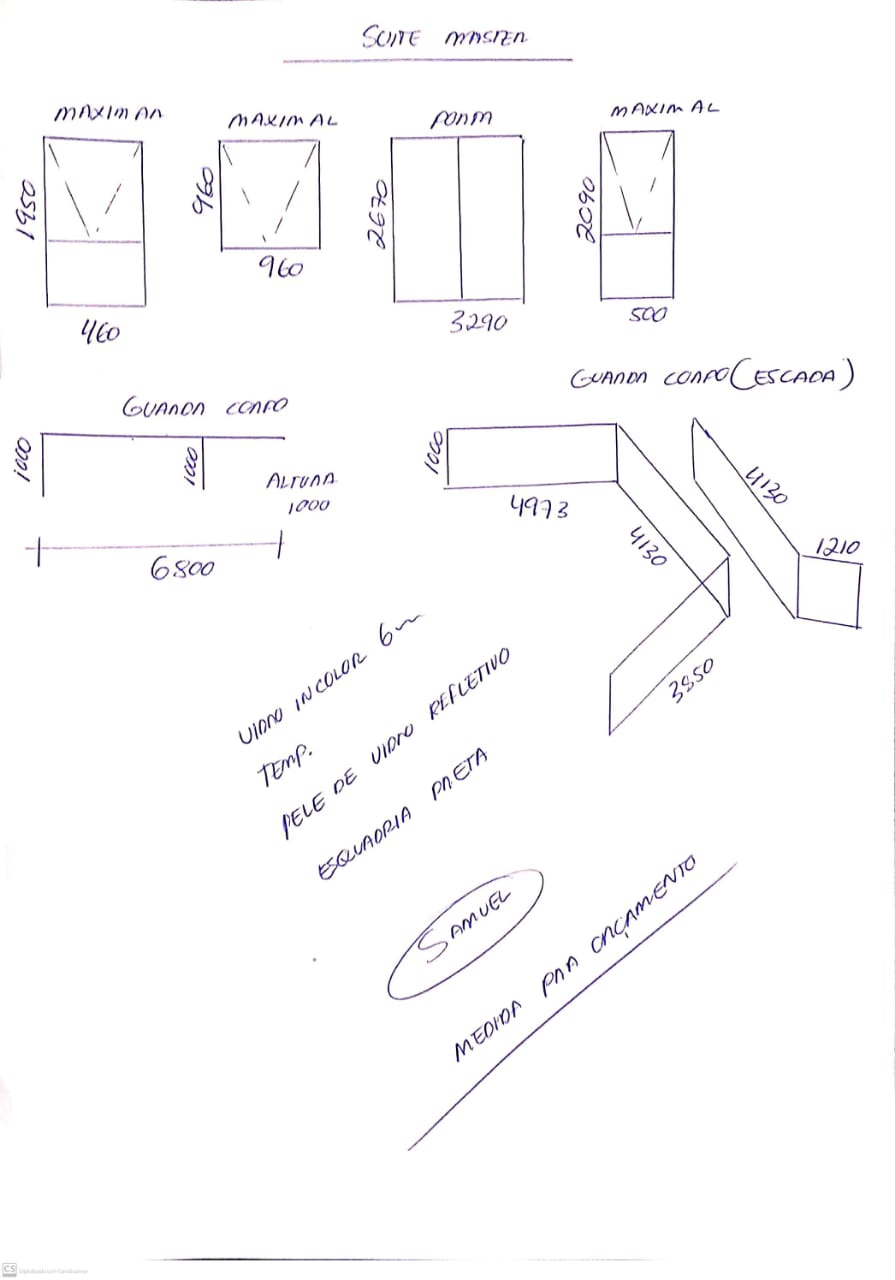 SUITE MASTER
MAXIMAR
MAXIMAL
PORTA
MAXIMAL
1950
960
2670
2090
460
960
3290
500
GUARDA CORPO (ESCADA)
GUARDA CORPO
1000
1000
ALTURA
1000
6800
1000
4973
4130
4130
1210
3850
VIDRO INCOLOR 6m
TEMP.
PELE DE VIDRO REFLETIVO
ESQUADRIA PRETA
SAMUEL
MEDIDA PARA ORÇAMENTO
CS Digitalizado com CamScanner